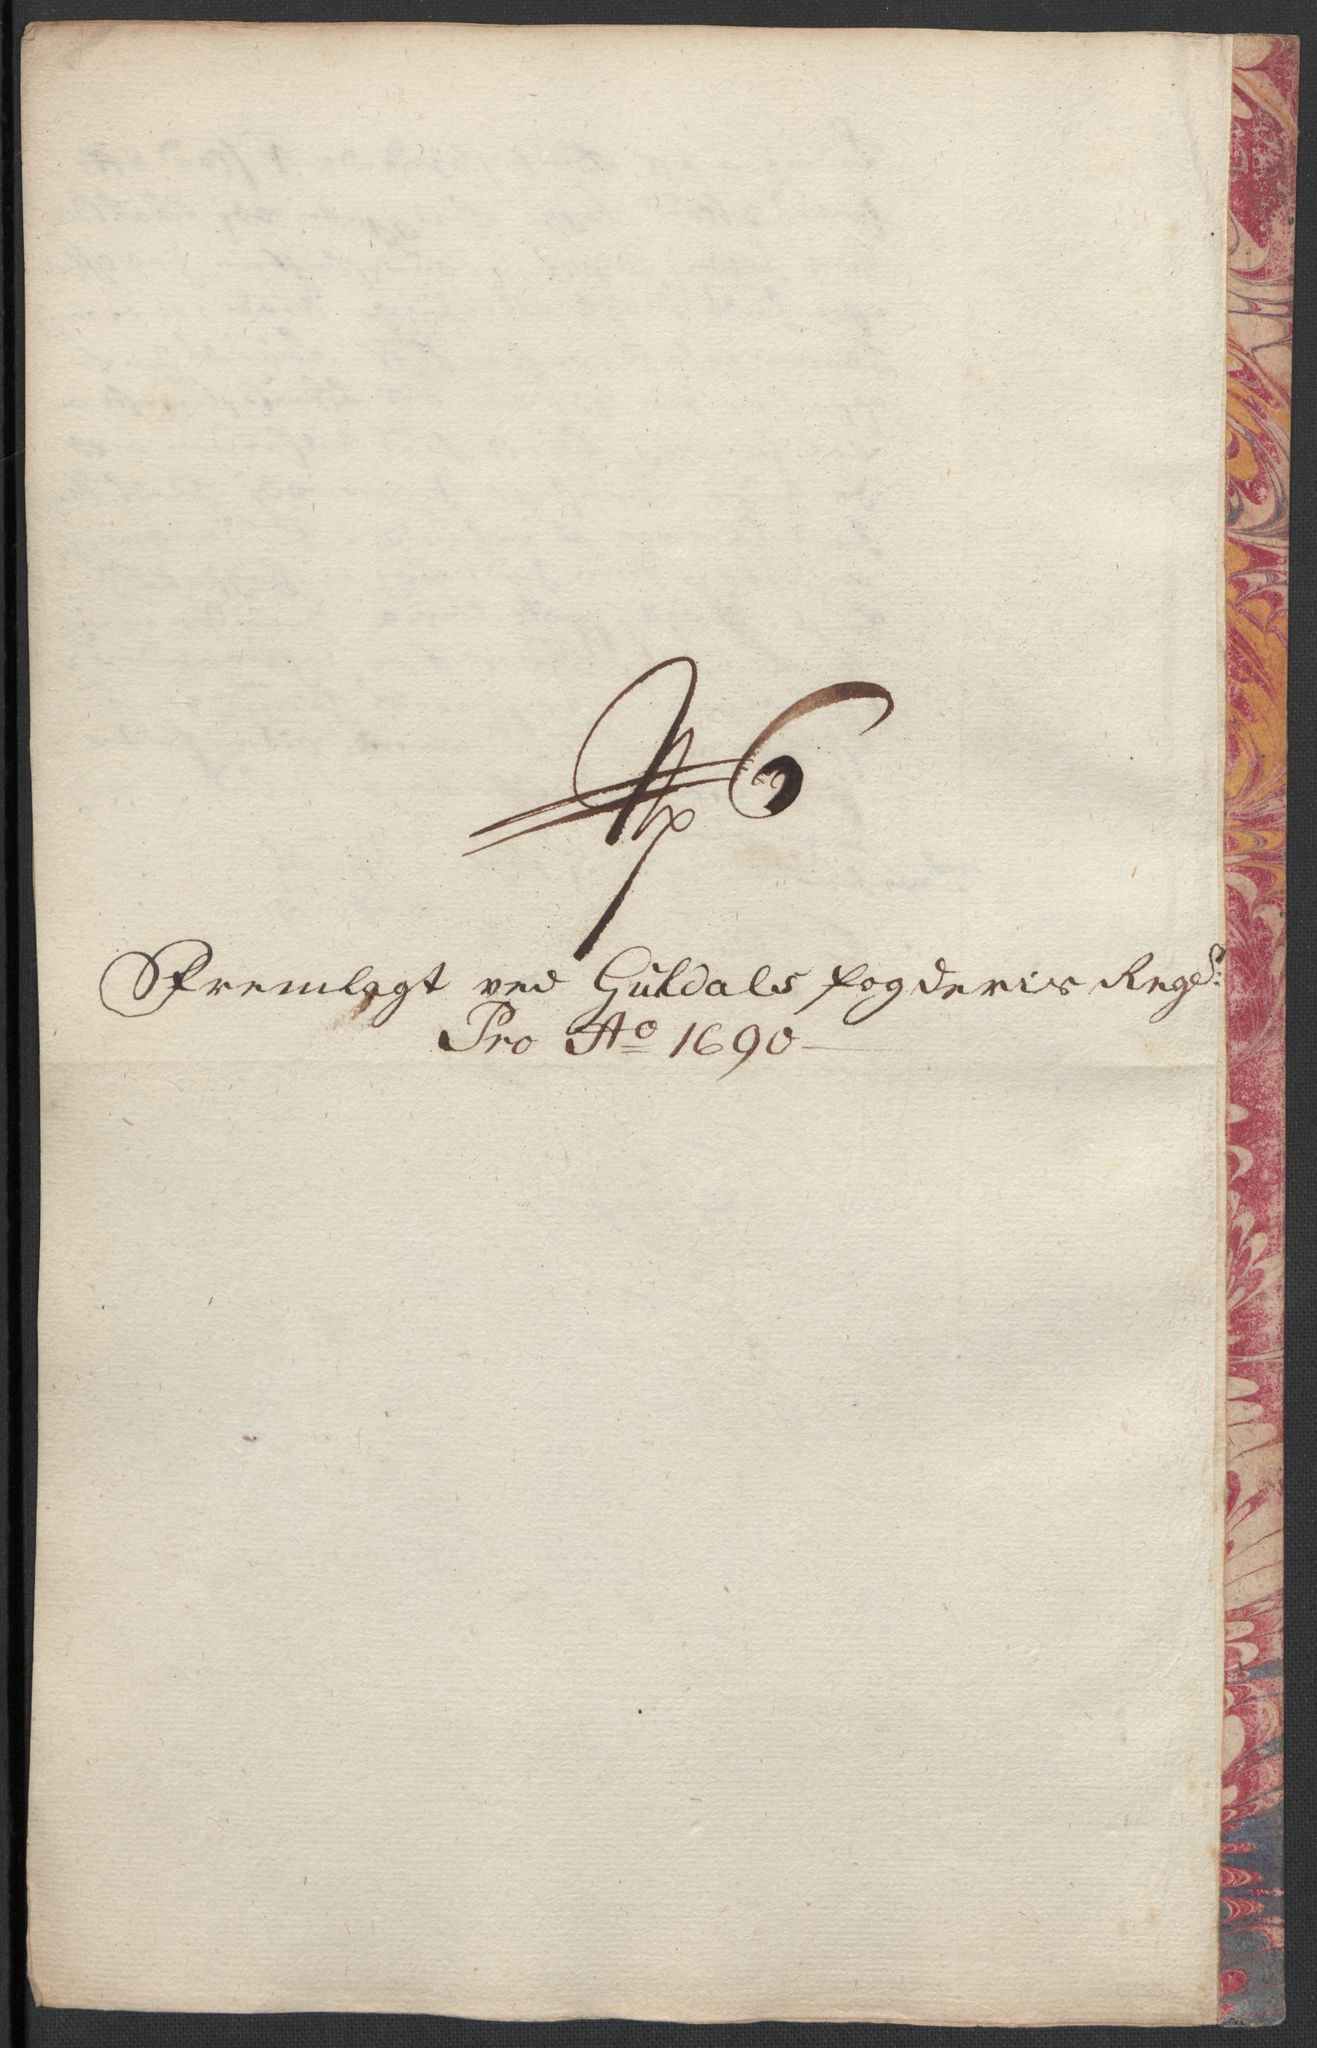 No 6
Fremlagt ved Guldals fogderis Regs:
Pro Ao 1690